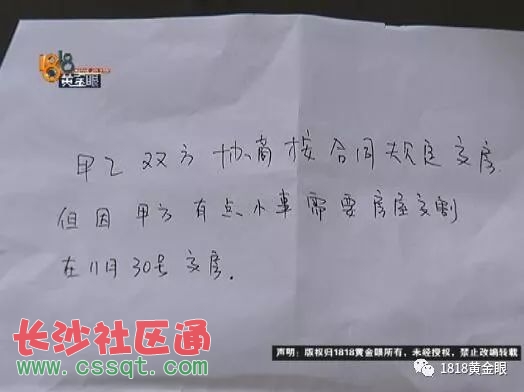 1818
黄金眼
甲乙双方协商按合同规定交房.
但因甲方有点小事需要房屋交割
在11月30号交房.
长沙社区通
www.cssqt.com
声明：版权归1818黄金眼所有，未经授权，禁止改编转载
1818黄金眼